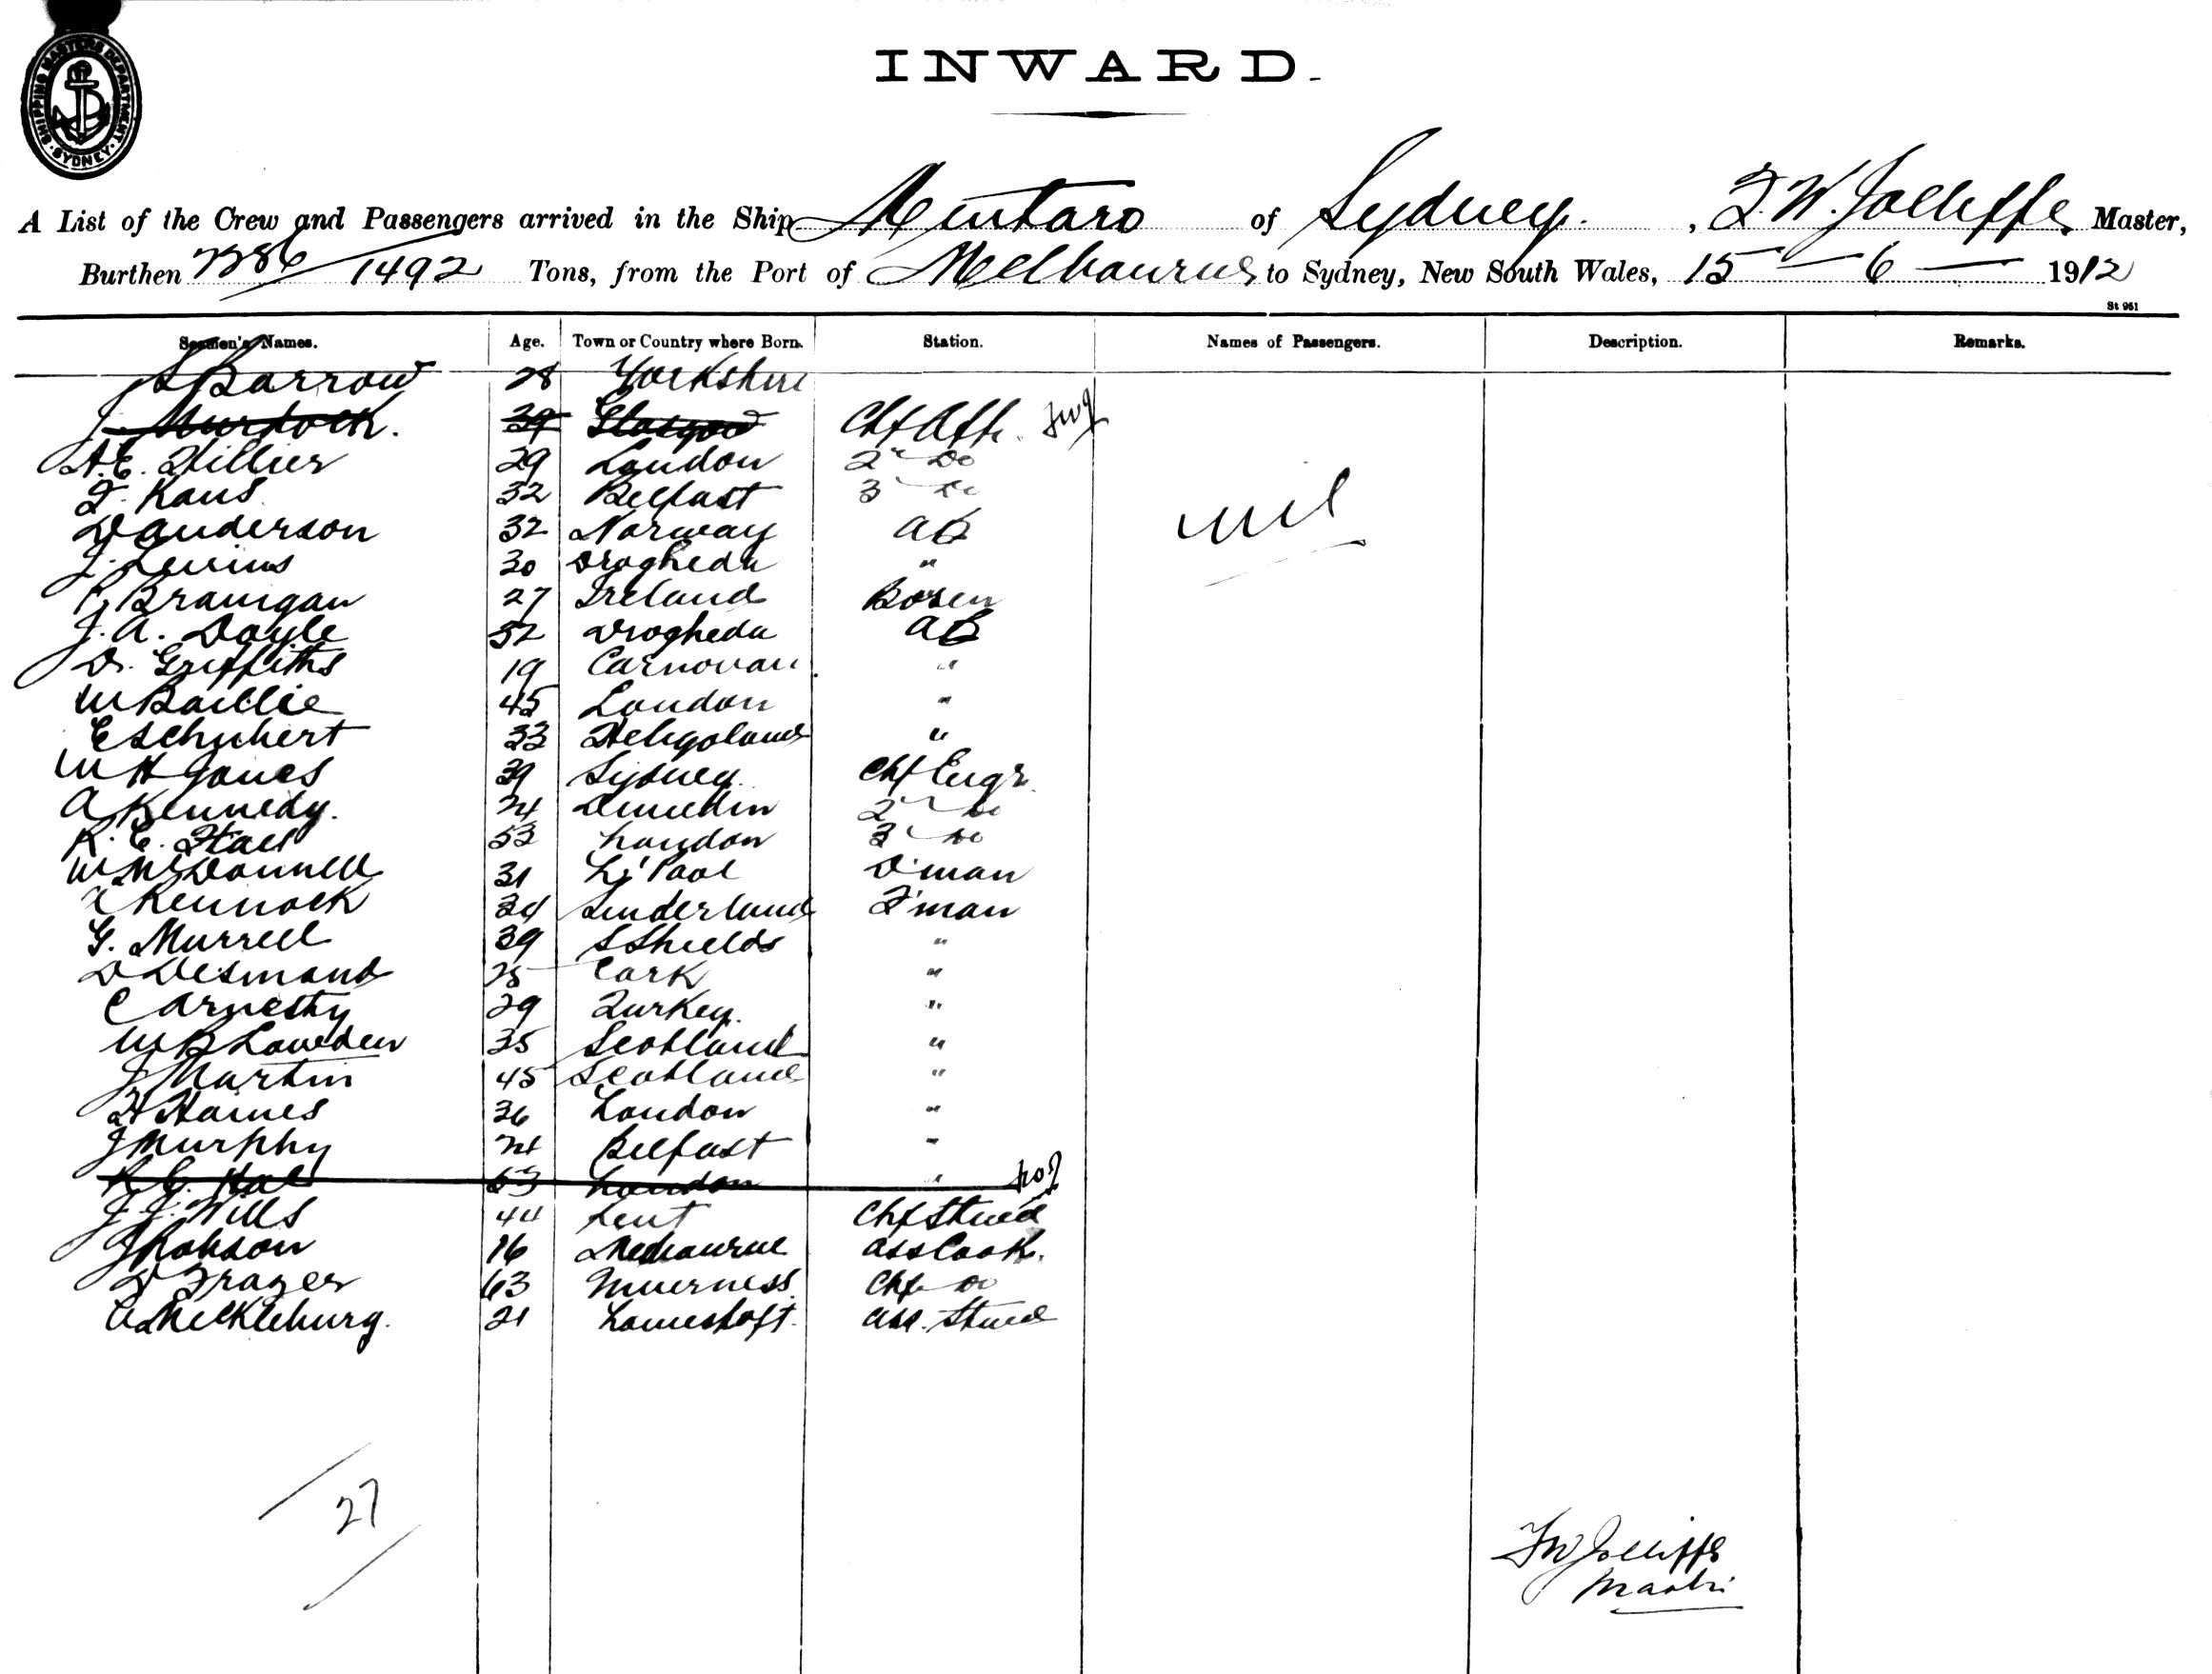 SHIPPING MASTERS DEPARTMENT · SYDNEY ·
INWARD.
A List of the Crew and Passengers arrived in the Ship of Sydney. , F. W. Jolliffe Master,
Burthen 2386/1492 Tons, from the Port of Melbourne to Sydney, New South Wales, 15 — 6 — 1912
St 951
Seamen's Names. Age. Town or Country where Born. Station. Names of Passengers. Description. Remarks.
S Barrow 28 Yorkshire
J. Murdock. 39 Glasgow Chf Offr. fwj
A. E. Hillier 29 London 2nd Do
F. Kaus 32 Belfast 3 Do
nil
D Anderson 32 Norway AB
J. Levins 30 Drogheda "
P Branigan 27 Ireland Bosen
J. A. Doyle 52 Drogheda AB
D. Griffiths 19 Carnovan "
W Baillie 45 London "
E Schubert 33 Heligoland "
W H Jones 39 Sydney. Chf Engr.
A Kennedy. 24 Dunedin 2nd Do
R. E. 53 London 3 Do
W McDonnell 31 L'Pool D'man
Kennock 34 Sunderland F'man
G. Murrell 39 S Shields "
D Desmond 25 Cork "
C Arnesty 29 Turkey. "
W B Lowden 35 Scotland "
J Martin 45 Scotland "
H Haines 36 London "
J Murphy 24 Belfast "
R E. 53 London "
J. J. Wills 44 Kent Chf Stwed
J Robson 16 Melbourne Ass Cook.
D Frazer 63 Inverness. Chf Do
C Meckleburg. 21 Lowestoft. Ass. Stwed
27
FW Jolliffe
Master